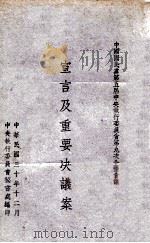 中國國民黨第五屆中央執行委員會第九次全體會議
宣言及重要决議案
中華民國三十年十二月
中央執行委員會秘書處編印